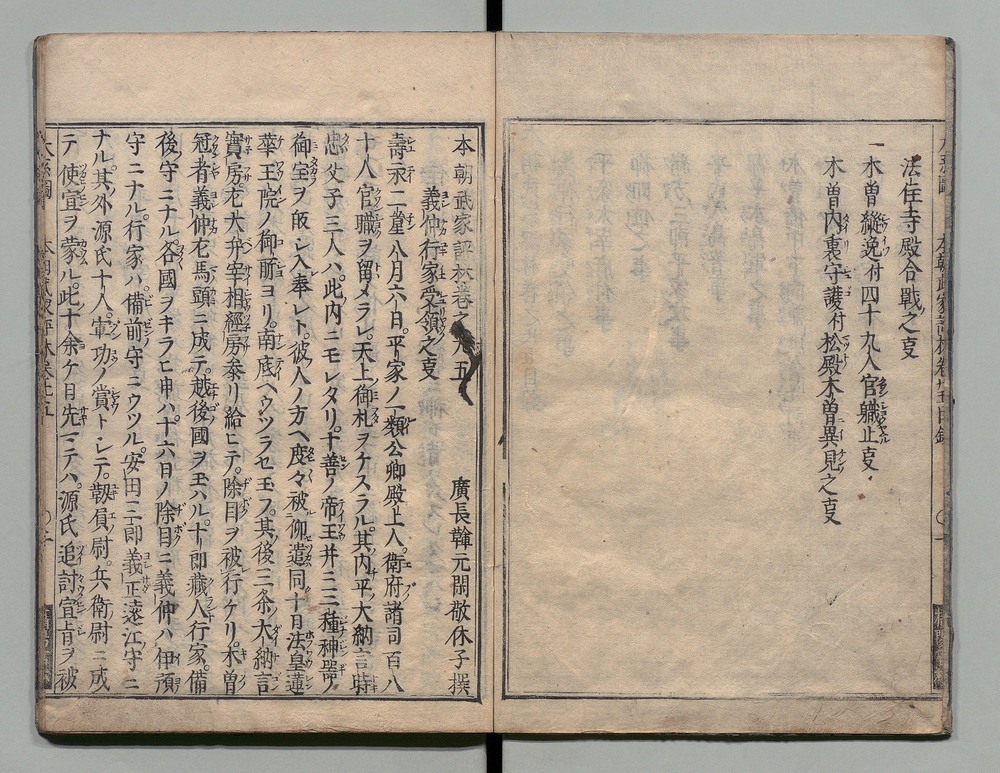 法住寺殿合戰之叓
一木曽縱逸付四十九人官軄止叓
木曽内裏守護付松殿木曽異見之叓
本朝武家評林巻之
義仲行家受領之叓
廣長軒元閑敬休子撰
壽永二年八月六日。平家ノ一類公卿殿上人衛府諸司百八
十人官職ヲ留メラレ。天上御札ヲケスラル。其内平大納言時
忠父子三人ハ。此内ニモレタリ。十善ノ帝王并ニ三種神器。
御室ヲ敀シ入奉レト。彼人ノ方ヘ度々被仰遣同十日法皇蓮
華王院ノ御所ヨリ。南底ヘウツラセ玉フ。其後三条大納言
實房左大弁宰相經房参リ給ヒテ。除目ヲ被行ケリ。木曽
冠者義仲左馬頭ニ成テ。越後國ヲ玉ハル。十郎藏人行家。備
後守ニナル各國ヲキラヒ申ハ。十六日ノ除目ニ義仲ハ伊豫
守ニナル。行家ハ備前守ニウツル。安田三郎義正遠江守ニ
ナル。其外源氏十人。軍功ノ賞トシテ。靱負尉。兵衛尉ニ成
テ使宣ヲ蒙ル。此十余ケ日先ニテハ。源氏追討宣旨ヲ被